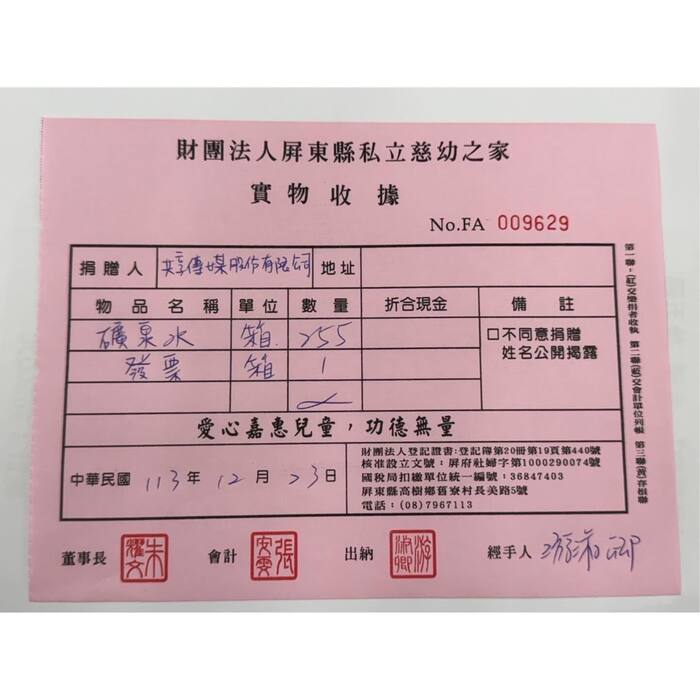 財團法人屏東縣私立慈幼之家
實物收據
No.FA 009629
捐贈人 共享傳媒股份有限公司 地址
物品名稱 單位 數量 折合現金 備註
礦泉水 箱 255 □不同意捐贈
發票 箱 1 姓名公開揭露
愛心嘉惠兒童,功德無量
中華民國 113 年 12 月 23 日
財團法人登記證書:登記簿第20冊第19頁第440號
核准設立文號:屏府社婦字第1000290074號
國稅局扣繳單位統一編號:36847403
屏東縣高樹鄉舊寮村長美路5號
電話:(08)7967113
董事長 朱耀文 會計 張安雯 出納 游淑卿 經手人
第一聯:(紅)交樂捐者收執 第二聯(藍)交會計單位列帳 第三聯(黃)存捐聯